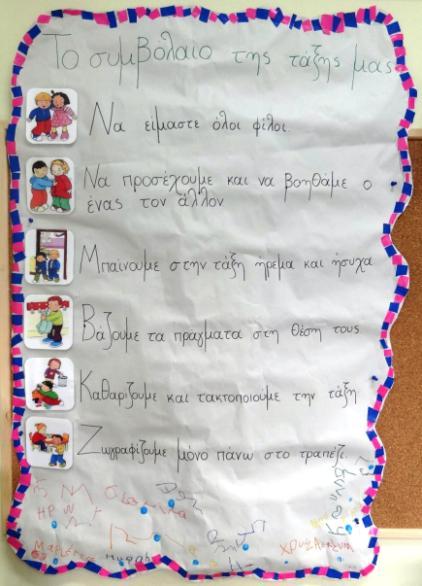 Το συμβόλαιο της τάξης μας
Να είμαστε όλοι φίλοι.
Να προσέχουμε και να βοηθάμε ο
ένας τον άλλον
Μπαίνουμε στην τάξη ήρεμα και ήσυχα
Βάζουμε τα πράγματα στη θέση τους
Καθαρίζουμε και τακτοποιούμε την τάξη
Ζωγραφίζουμε μόνο πάνω στο τραπέζι